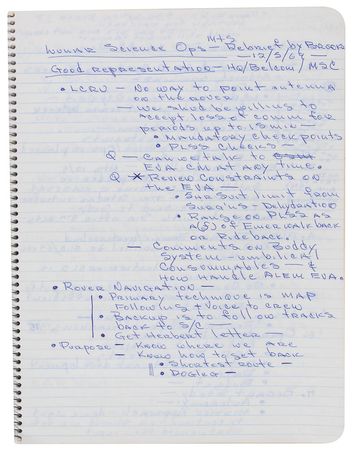 MTS
Lunar Science Ops - Debrief by Brock
12/5/69
Good Representation - HQ/Belcom/MSC
• LCRU - No way to point antenna
on the rover
- We should be willing to
accept loss of comm for
periods up to 15 min -
• Mandatory checkpoints
• PLSS checks -
Q - Can we talk to
EVA CM at any time.
Q * Review constraints on
the EVA -
• Sur suit limit from
Surgeons - Dehydration
• Range on PLSS as
a f() of Emer walk back
or Rideback.
- Comments on Buddy
System - umbilical /
Consummables - &
how handle ALEM EVA.
• Rover Navigation -
• Primary technique is map
following & voice to crew
• Backup is to follow tracks
back to S/C -
• Get Herbert letter -
• Purpose - Know where we are
- Know how to get back
• Shortest route -
• Dogleg -